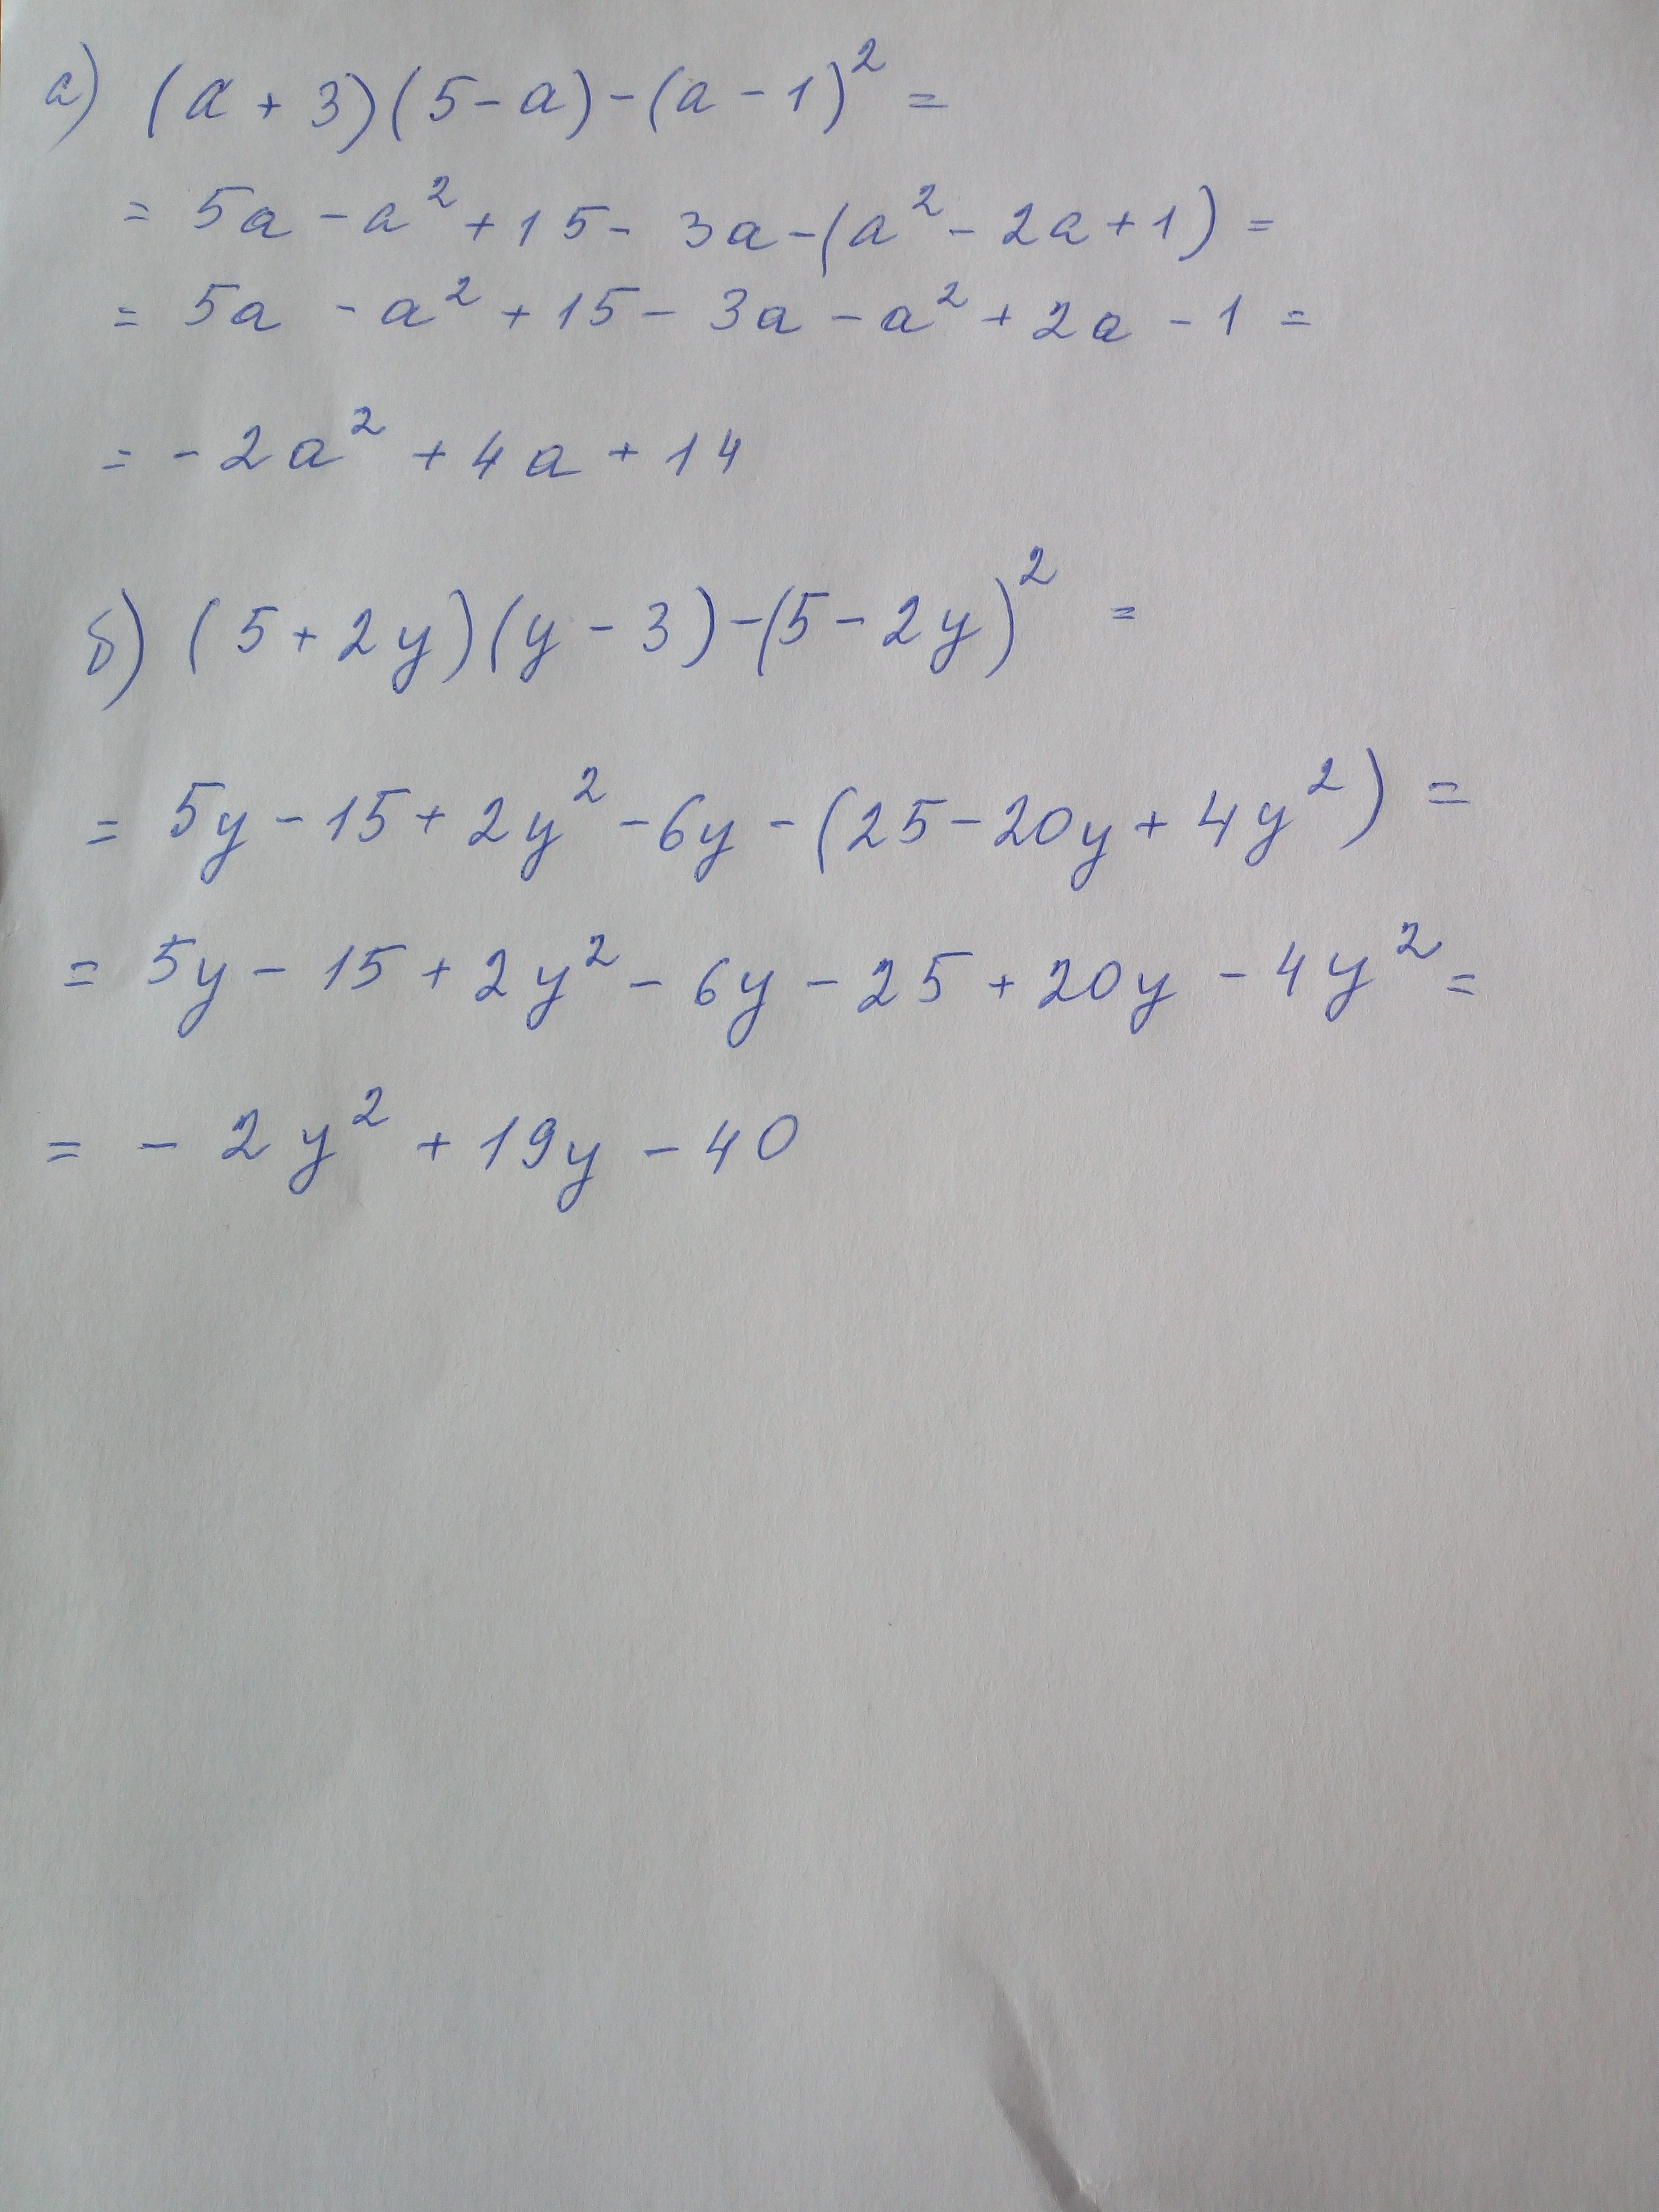 а) (a + 3)(5 - a) - (a - 1)² =
= 5a - a² + 15 - 3a - (a² - 2a + 1) =
= 5a - a² + 15 - 3a - a² + 2a - 1 =
= - 2a² + 4a + 14
б) (5 + 2y)(y - 3) - (5 - 2y)² =
= 5y - 15 + 2y² - 6y - (25 - 20y + 4y²) =
= 5y - 15 + 2y² - 6y - 25 + 20y - 4y² =
= - 2y² + 19y - 40